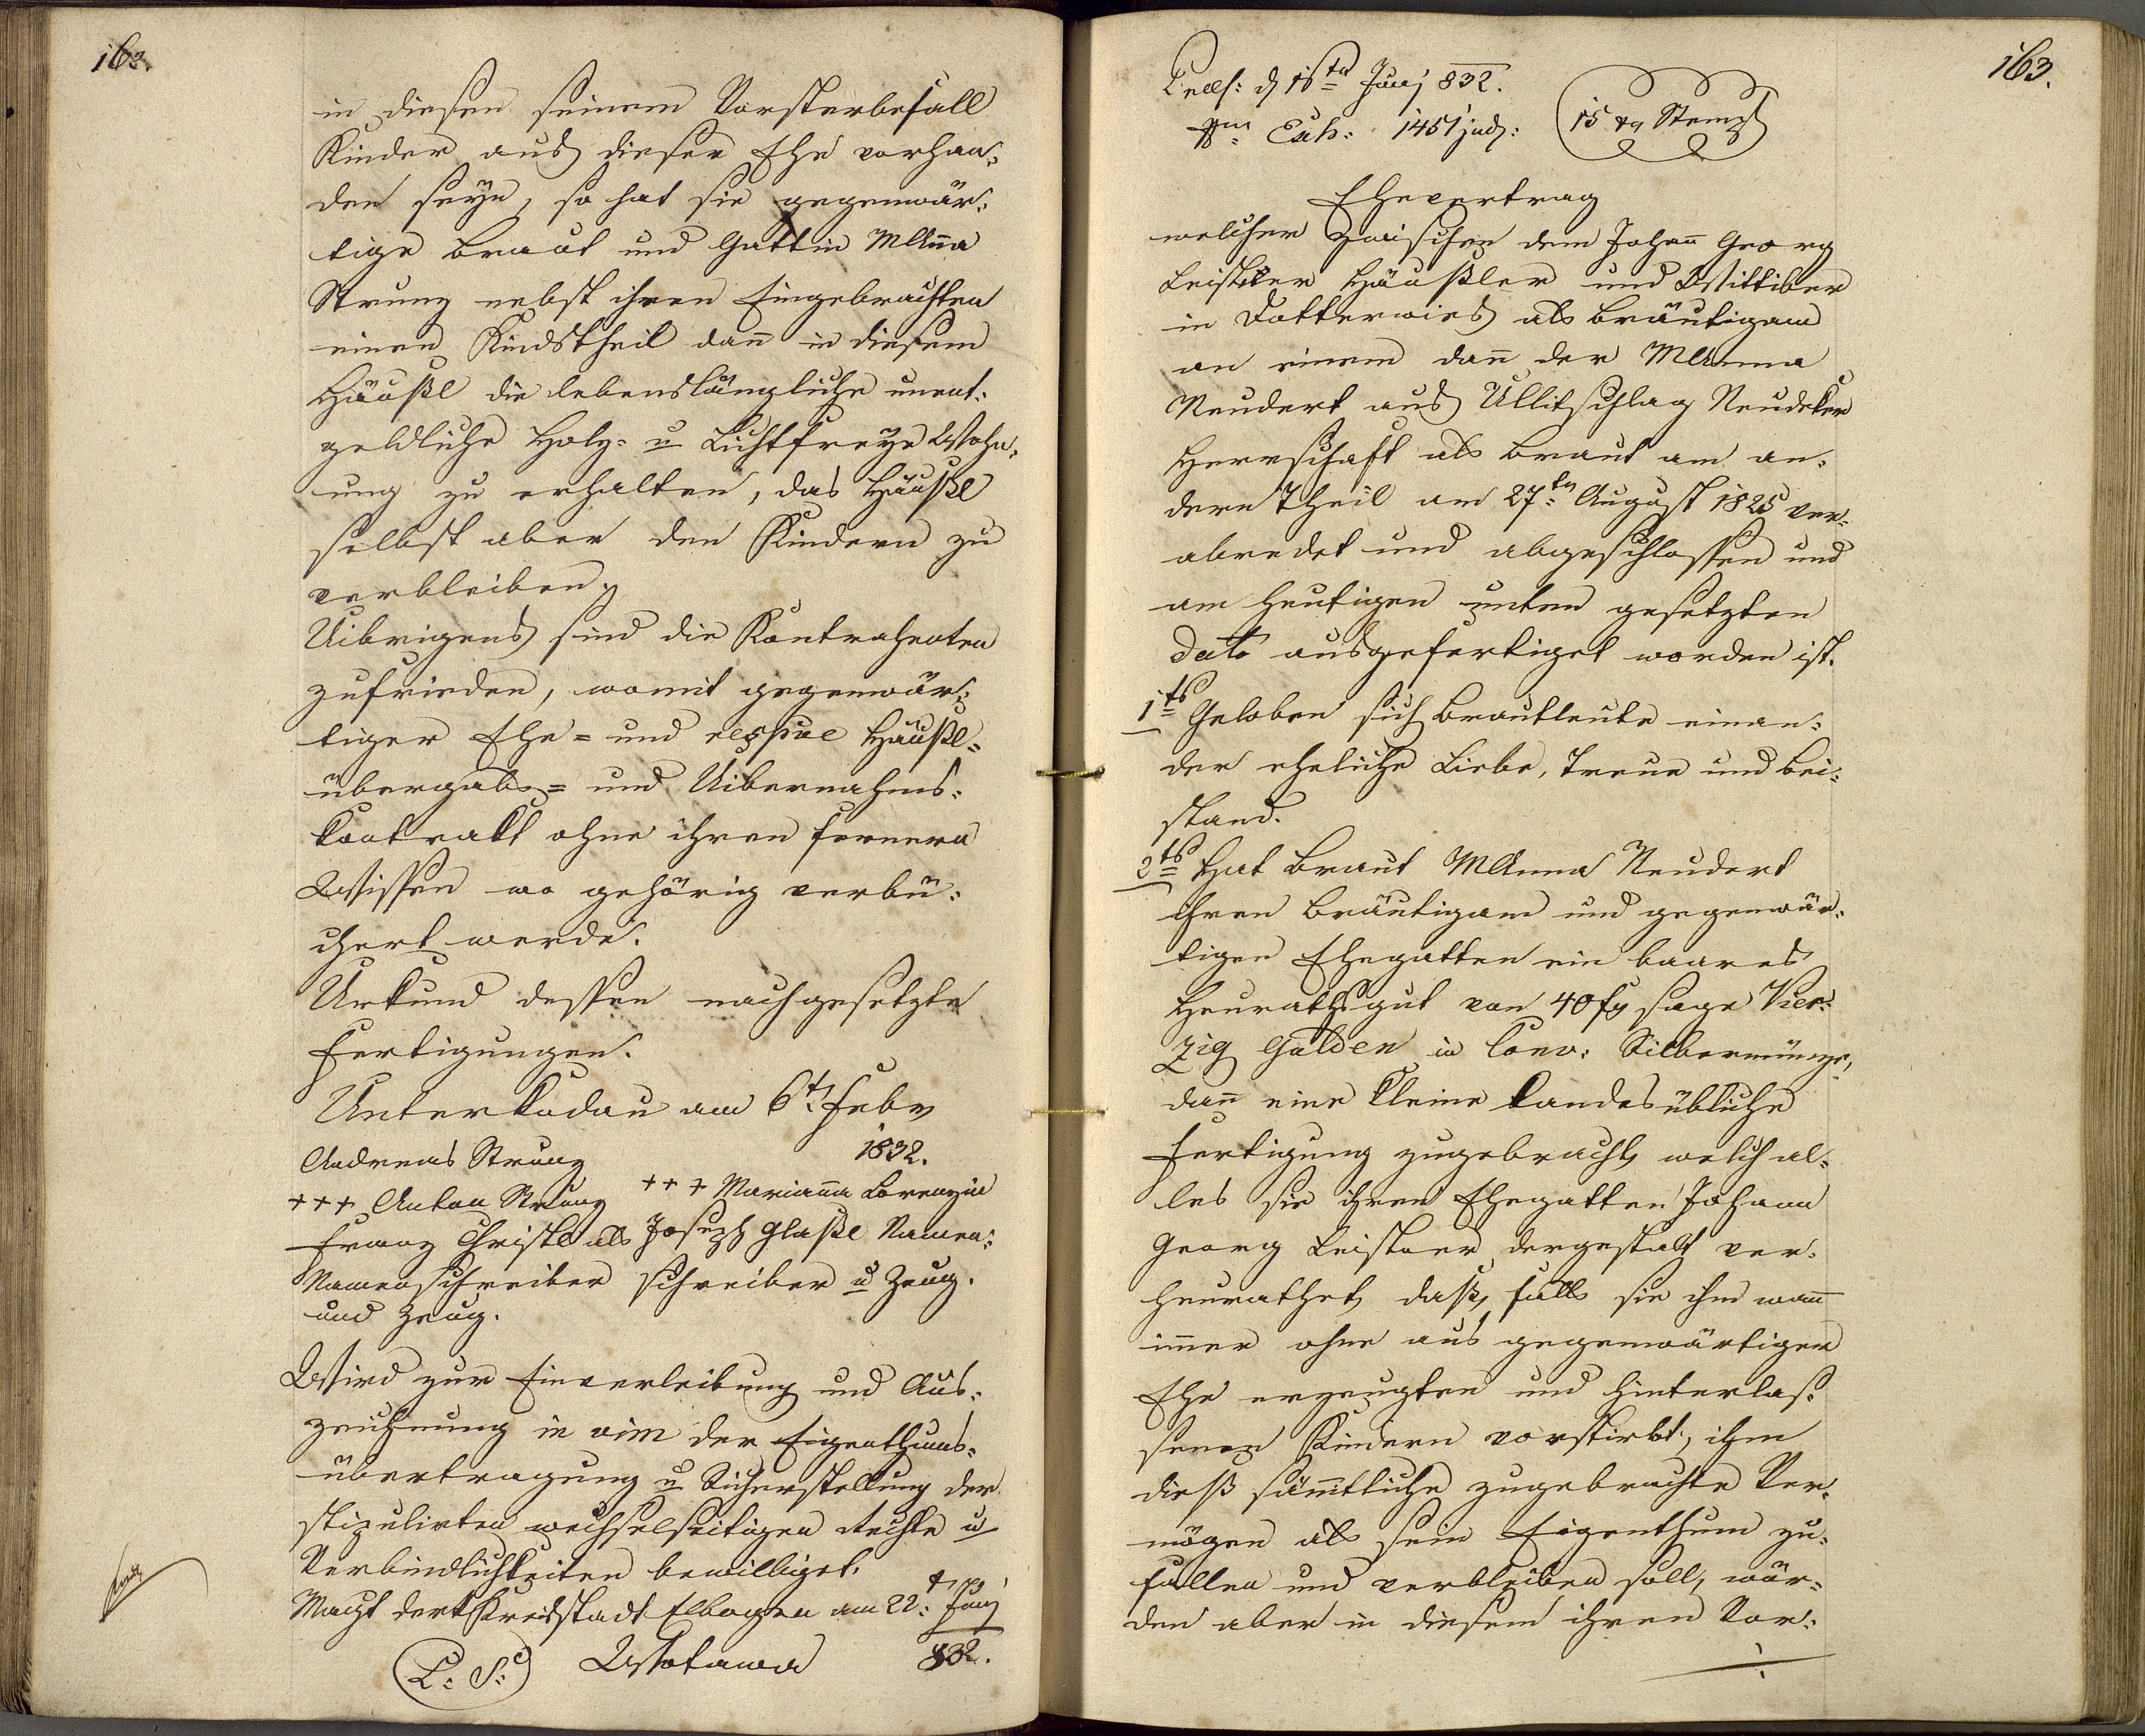 162.
in diesen seinem Vorsterbefall
Kinder aus dieser Ehe vorhan:
den seÿn, so hat sie gegenwär:
tige Braut und Gattin MAn̄a
Strunz nebst ihren Eingebrachten
einen Kindstheil dan̄ in diesem
Häußl die lebenslängliche unent:
geldliche Holz- u Lichtfreÿe Wohn:
ung zu erhalten, das Häußl
selbst aber den Kindern zu
verbleiben.
Uibrigens sind die Kontrahenten
zufrieden, womit gegenwär:
tiger Ehe- und respue Häußl-
übergabs- und Uibernahms:
Kontrakt ohne ihren fernern
Wissen wo gehörig verbü:
chert werde.
Urkund dessen nachgesetzte
Fertigungen.
Unterkodau am 6t. Febr
1832.
Andreas Strunz
+++ Anton Strunz +++ Marian̄a Lorenzin
Franz Christl als Joseph Glaßl Namen:
Namenschreiber schreiber u Zeug.
und Zeug.
Wird zur Einverleibung und Aus:
zeichnung in vim der Eigenthums:
übertragung u Sicherstellung der
stipulirten wechselseitigen Rechte u
Verbindlichkeiten bewilliget.
Magt der k Kreisstadt Elbogen am 22: Junj
L: S: Wotawa 832.
163.
Præs: d 16ta Junj 832.
Exh: 1451 jud: 15 xr Stempl
Ehevertrag
welcher zwischen dem Johan̄ Georg
Leistner Häußler und Wittiber
in Dotterwies als Bräutigam
an einem dan̄ der MAnna
Neudert aus Ullitschlag Neudeker
Herrschaft als Braut am an:
dern Theil am 27tn August 1825 ver:
abredet und abgeschlossen und
am heutigen unten gesetzten
Dato ausgefertiget worden ist.
1ts Geloben sich Brautleute einan:
der eheliche Liebe, Treue und Bei:
stand.
2ts Hat Braut MAnna Neudert
ihren Bräutigam und gegenwär:
tigen Ehegatten ein baares
Heurathsgut von 40 fl sage Vier:
zig Gulden in Conv: Silbermünze,
dan̄ eine kleine landesübliche
Fertigung zugebracht, welch al:
les sie ihren Ehegatten Johann
Georg Leistner dergestalt ver:
heurathet, daß, falls sie ihm wan̄
im̄er ohne aus gegenwärtiger
Ehe erzeugten und hinterlaß:
senen Kindern vorstirbt, ihm
dieß säm̄tliche zugebrachte Ver:
mögen als sein Eigenthum zu:
fallen und verbleiben soll, wür:
den aber in diesem ihren Vor: